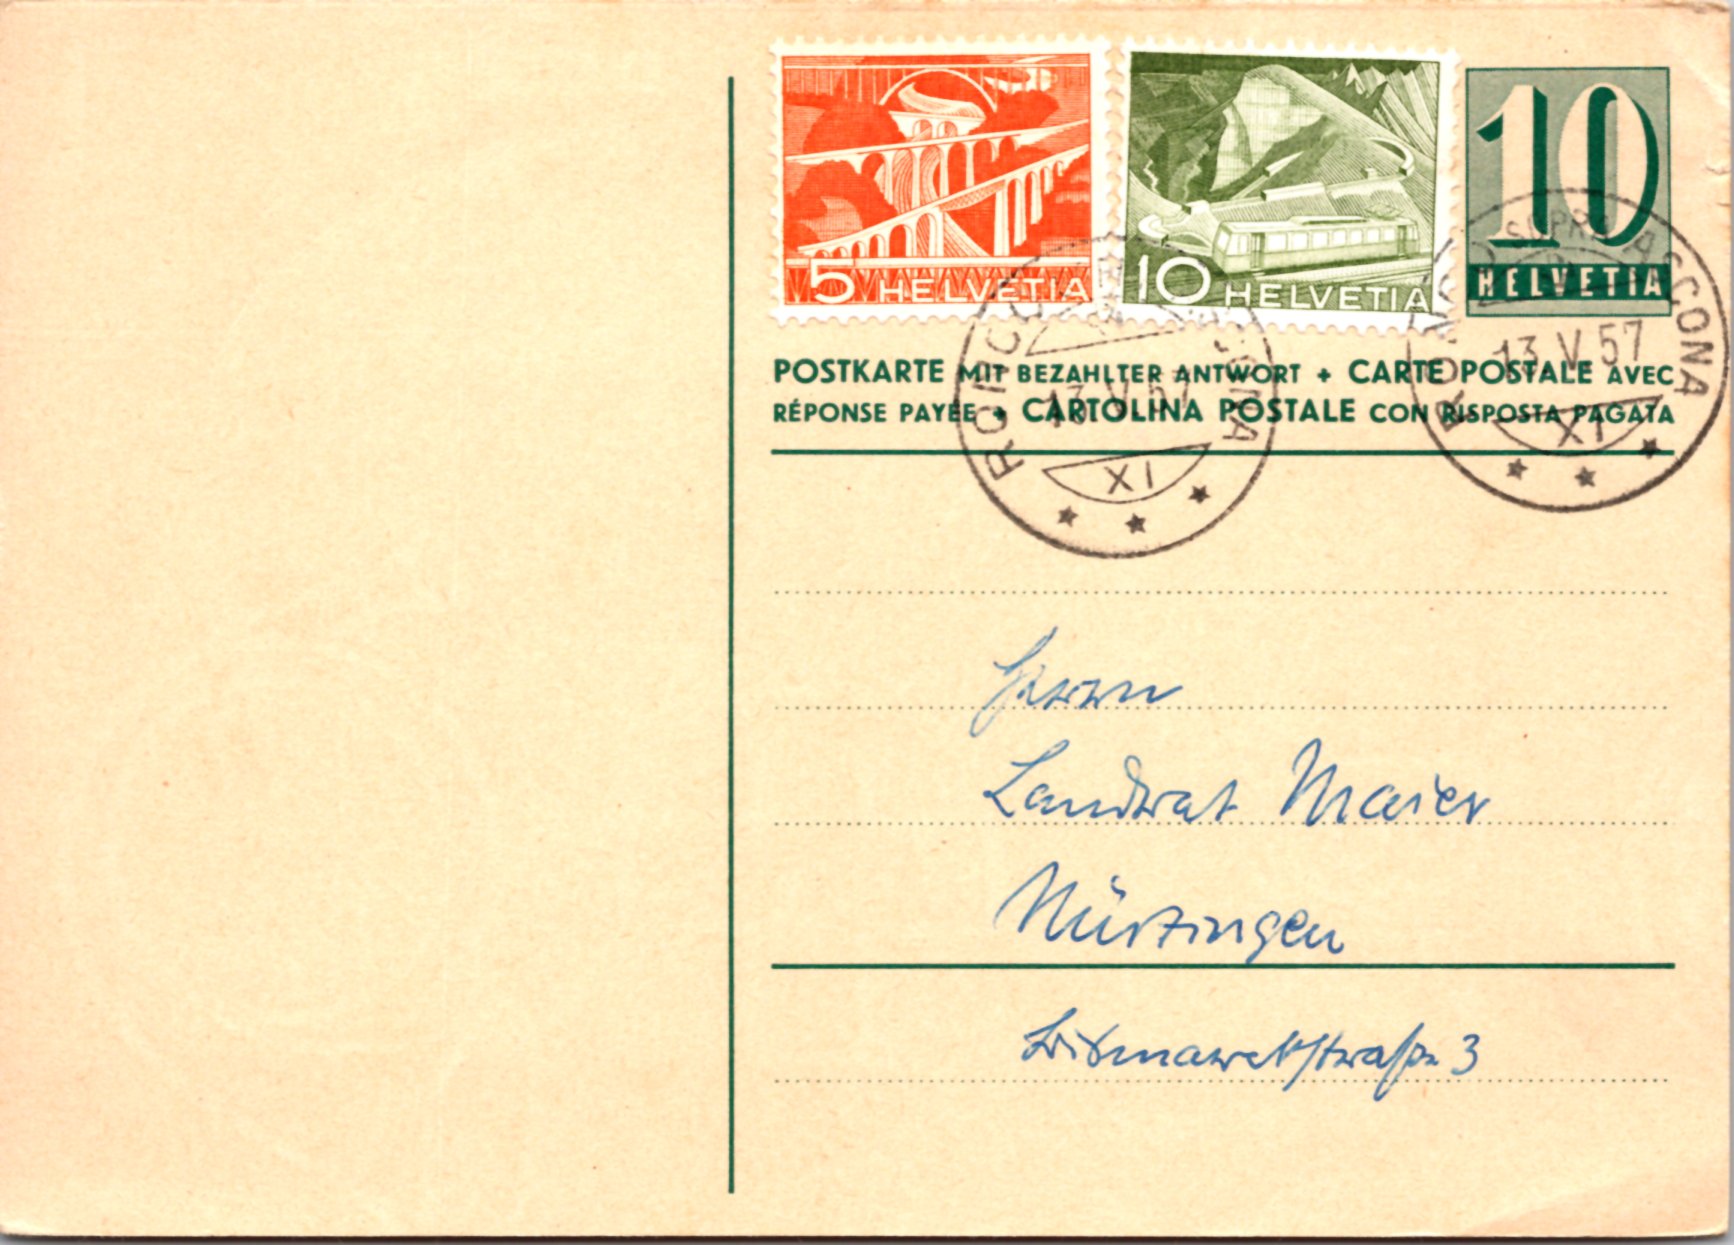 5 HELVETIA
10 HELVETIA
10
HELVETIA
POSTKARTE MIT BEZAHLTER ANTWORT + CARTE POSTALE AVEC
RÉPONSE PAYÉE + CARTOLINA POSTALE CON RISPOSTA PAGATA
RONCO SOPRA ASCONA
13.V.57
XI
RONCO SOPRA ASCONA
13.V.57
XI
Herrn
Landrat Maier
Nürtingen
Bismarckstraße 3